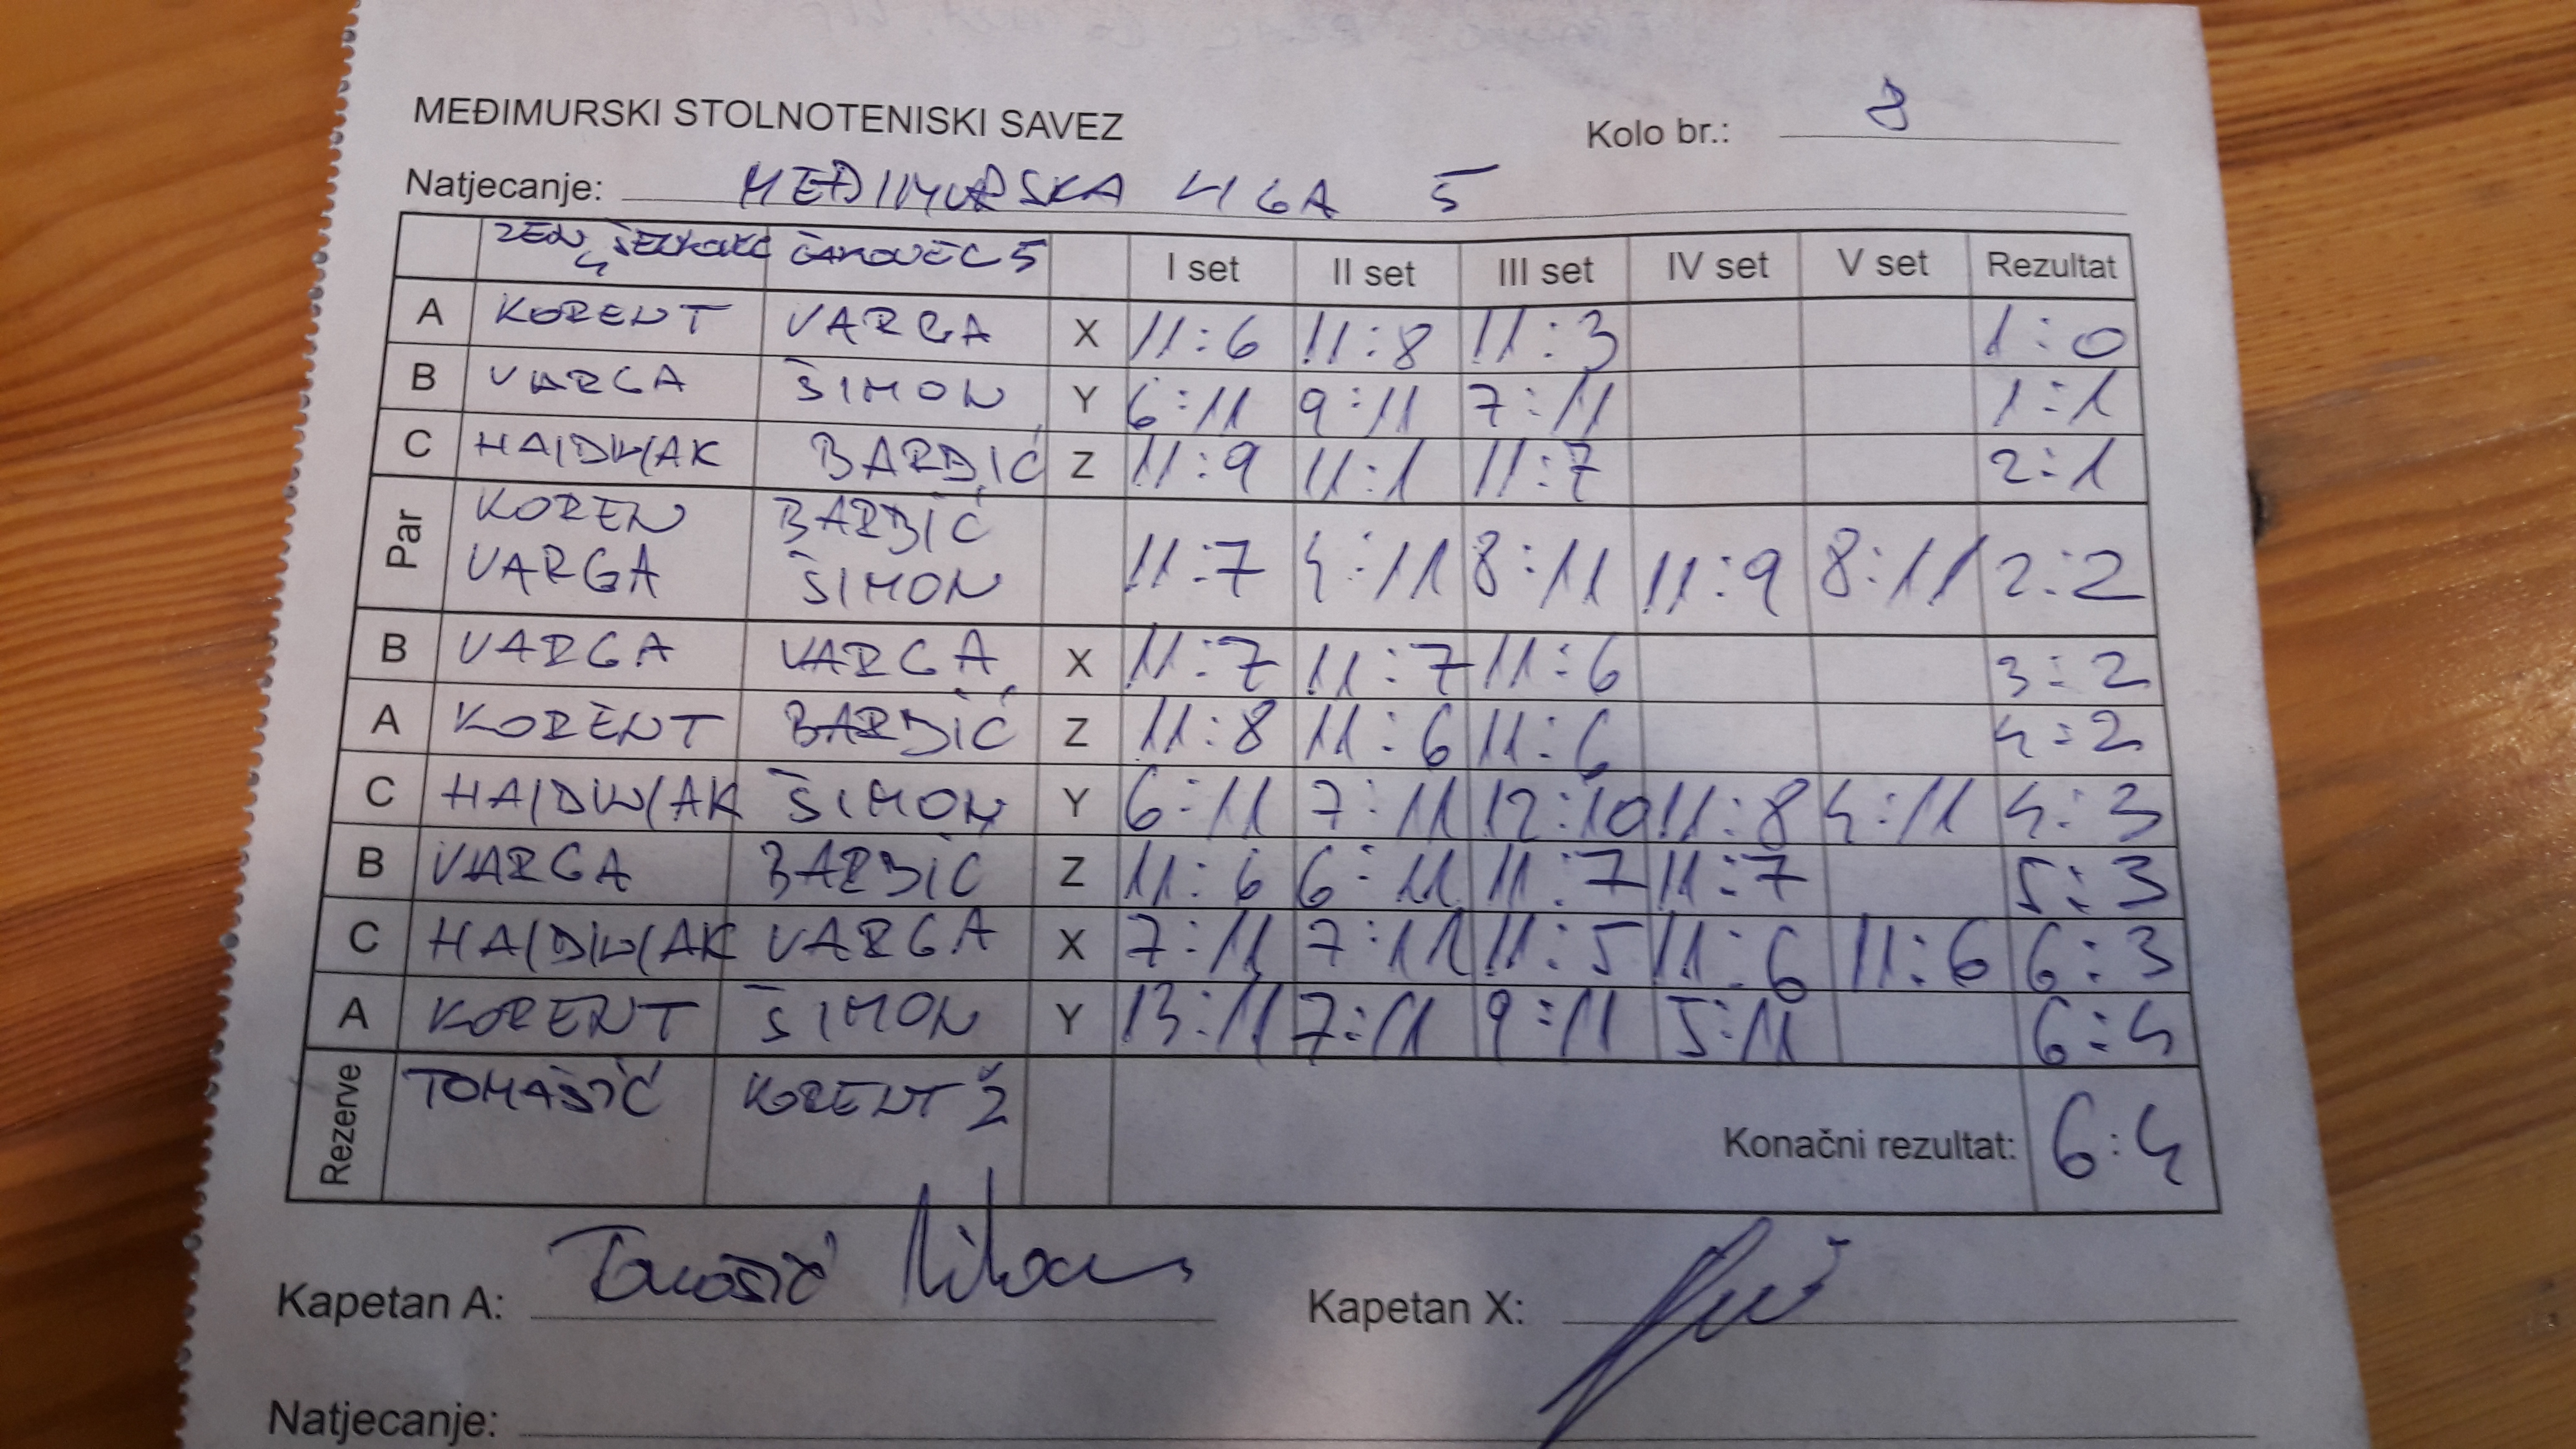 MEĐIMURSKI STOLNOTENISKI SAVEZ Kolo br.: 8
Natjecanje: MEĐIMURSKA LIGA 5
ČAKOVEC 5 I set II set III set IV set V set Rezultat
A KORENT VARGA X 11:6 11:8 11:3 1:0
B VARGA ŠIMON Y 6:11 9:11 7:11 1:1
C HAJDINJAK BARBIĆ Z 11:9 11:1 11:7 2:1
Par KOREN BARBIĆ
VARGA ŠIMON 11:7 4:11 8:11 11:9 8:11 2:2
B VARGA VARGA X 11:7 11:7 11:6 3:2
A KORENT BARBIĆ Z 11:8 11:6 11:6 4:2
C HAJDINJAK ŠIMON Y 6:11 7:11 12:10 11:8 4:11 4:3
B VARGA BARBIĆ Z 11:6 6:11 11:7 11:7 5:3
C HAJDINJAK VARGA X 7:11 7:11 11:5 11:6 11:6 6:3
A KORENT ŠIMON Y 13:11 7:11 9:11 5:11 6:4
Rezerve TOMAŠIĆ KORENT Ž
Konačni rezultat: 6:4
Kapetan A: Tomašić Kapetan X:
Natjecanje: